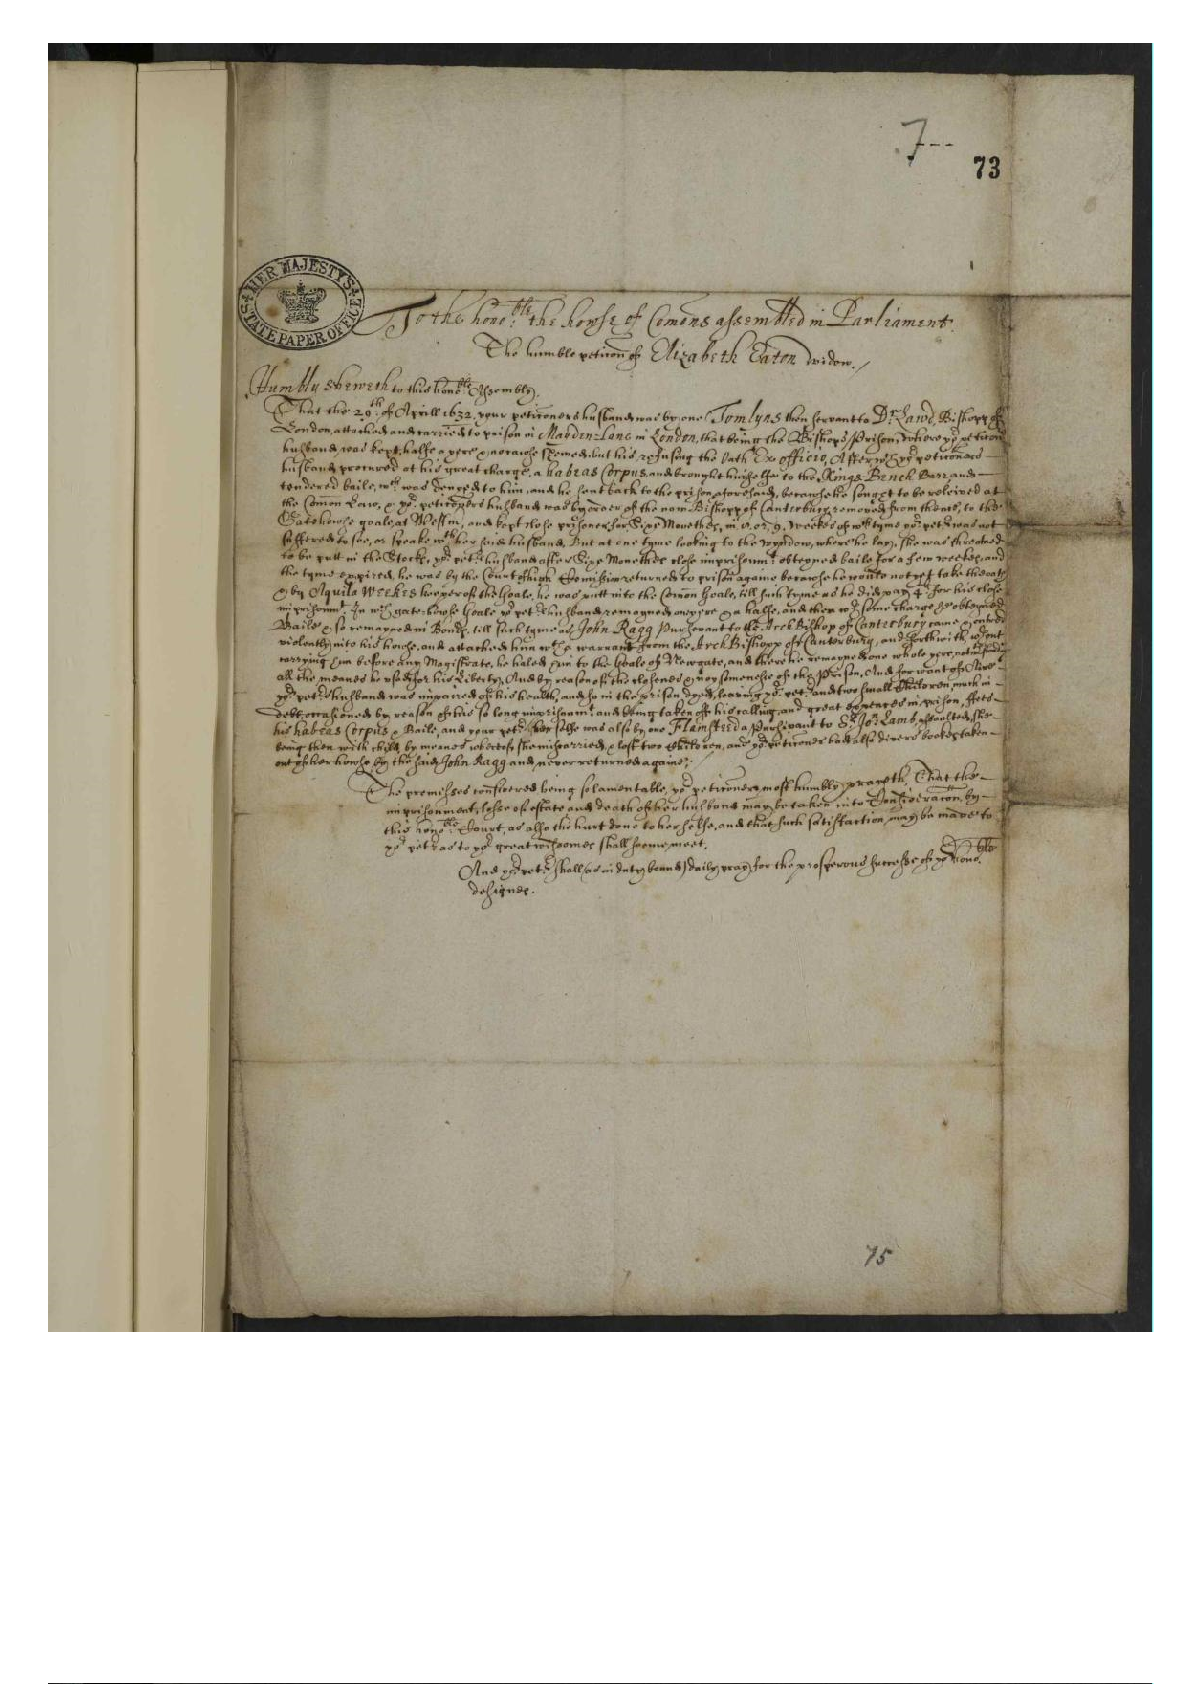 7--
73
HER MAJESTY'S
STATE PAPER OFFICE
To the hono:ble the howse of Comons assembled in Parliament.
The humble peticon of Elizabeth Eaton widow./
Humbly sheweth to this hono:ble Assembly.
That the 29th of Aprill 1632, your peticoners husband was by one Tomlyns then servant to Dr Lawd, Bishopp of
London, attached and carried to prison in Mayden-Lane in London, that being the Bishops Prison, where yor peticonrs
husband was kept halfe a yere & no cause shewed, but his refusing the Oath Ex officio, Afterwds yor peticoners
husband procured at his great charge, a habeas Corpus and brought himselfe to the Kings Bench Barr, and
tendered baile, wch was denyed to him, and he sent back to the prison aforesaid, because he sought to be releived at
the Comon Law, & yor peticoners husband was by order of the now Bishopp of Canterbury removed from thence, to the
Gatehowse goale, at Westm, and kept close prisoner, for Six Monethes, in 8. or. 9. weekes of wch tyme yor petr was not
suffered to see, or speake wth her said husband, But at one tyme looking to the wyndow, where he lay, she was threatned
to be putt in the Stocks, yor petrs husband after Six Monethes close imprisonmt obteyned baile for a few weekes, and
the tyme expired, he was by the Court of high Comission returned to prison againe because he would not yet take the oath
& by Aquila Weekes keeper of the Goale, he was putt into the Comon Goale, till such tyme as he did pay 4li for his close
imprisonmt. In wch gate-howse Goale yor petrs husband remayned one yere & a halfe, and then wth some charge he obteyned
Baile & so remayned in Bonds, till such tyme as John Ragg Pursevant to the ArchBishop of Canterbury came & entred
violently into his howse, and attached him wth a warrant from the ArchBishopp of Canterbury, and forthwith wthout
carrying him before any Magistrate, he haled him to the Goale of Newgate, and there he remayned one whole yere, notwthstanding
all the meanes he used for his Liberty, And by reason of the closenes & noysomenesse of the Prison, And for want of Aire
yor petrs husband was impaired of his health, and so in the prison dyed, leaving yor petr and two small Children, much in
debt, occasioned by reason of his so long imprisonmt and being taken off his calling, and great expences in prison, ffees
his habeas Corpus & Baile, and your petr her selfe was also by one Flamsteed a Pursivant to Sr Jo: Lamb, assaulted, she
being then with child, by meanes whereof she miscarried, & lost two Children, and yor peticoner had also divers bookes taken
out of her howse by the said John Ragg and never returned againe:/
The premisses considered being so lamentable, yor peticoner most humbly prayeth, That the
imprisonment, losse of estate and death of her husband may be taken into Consideracon, by
this hono:ble Court, as also the hurt done to her selfe, and that such satisfaction, may be made to
yor petr as to yor great wisdomes shall seeme meet.
And yor petr shall (as in duty bound) daily pray for the prosperous successe of yor hono:ble
designes.
75